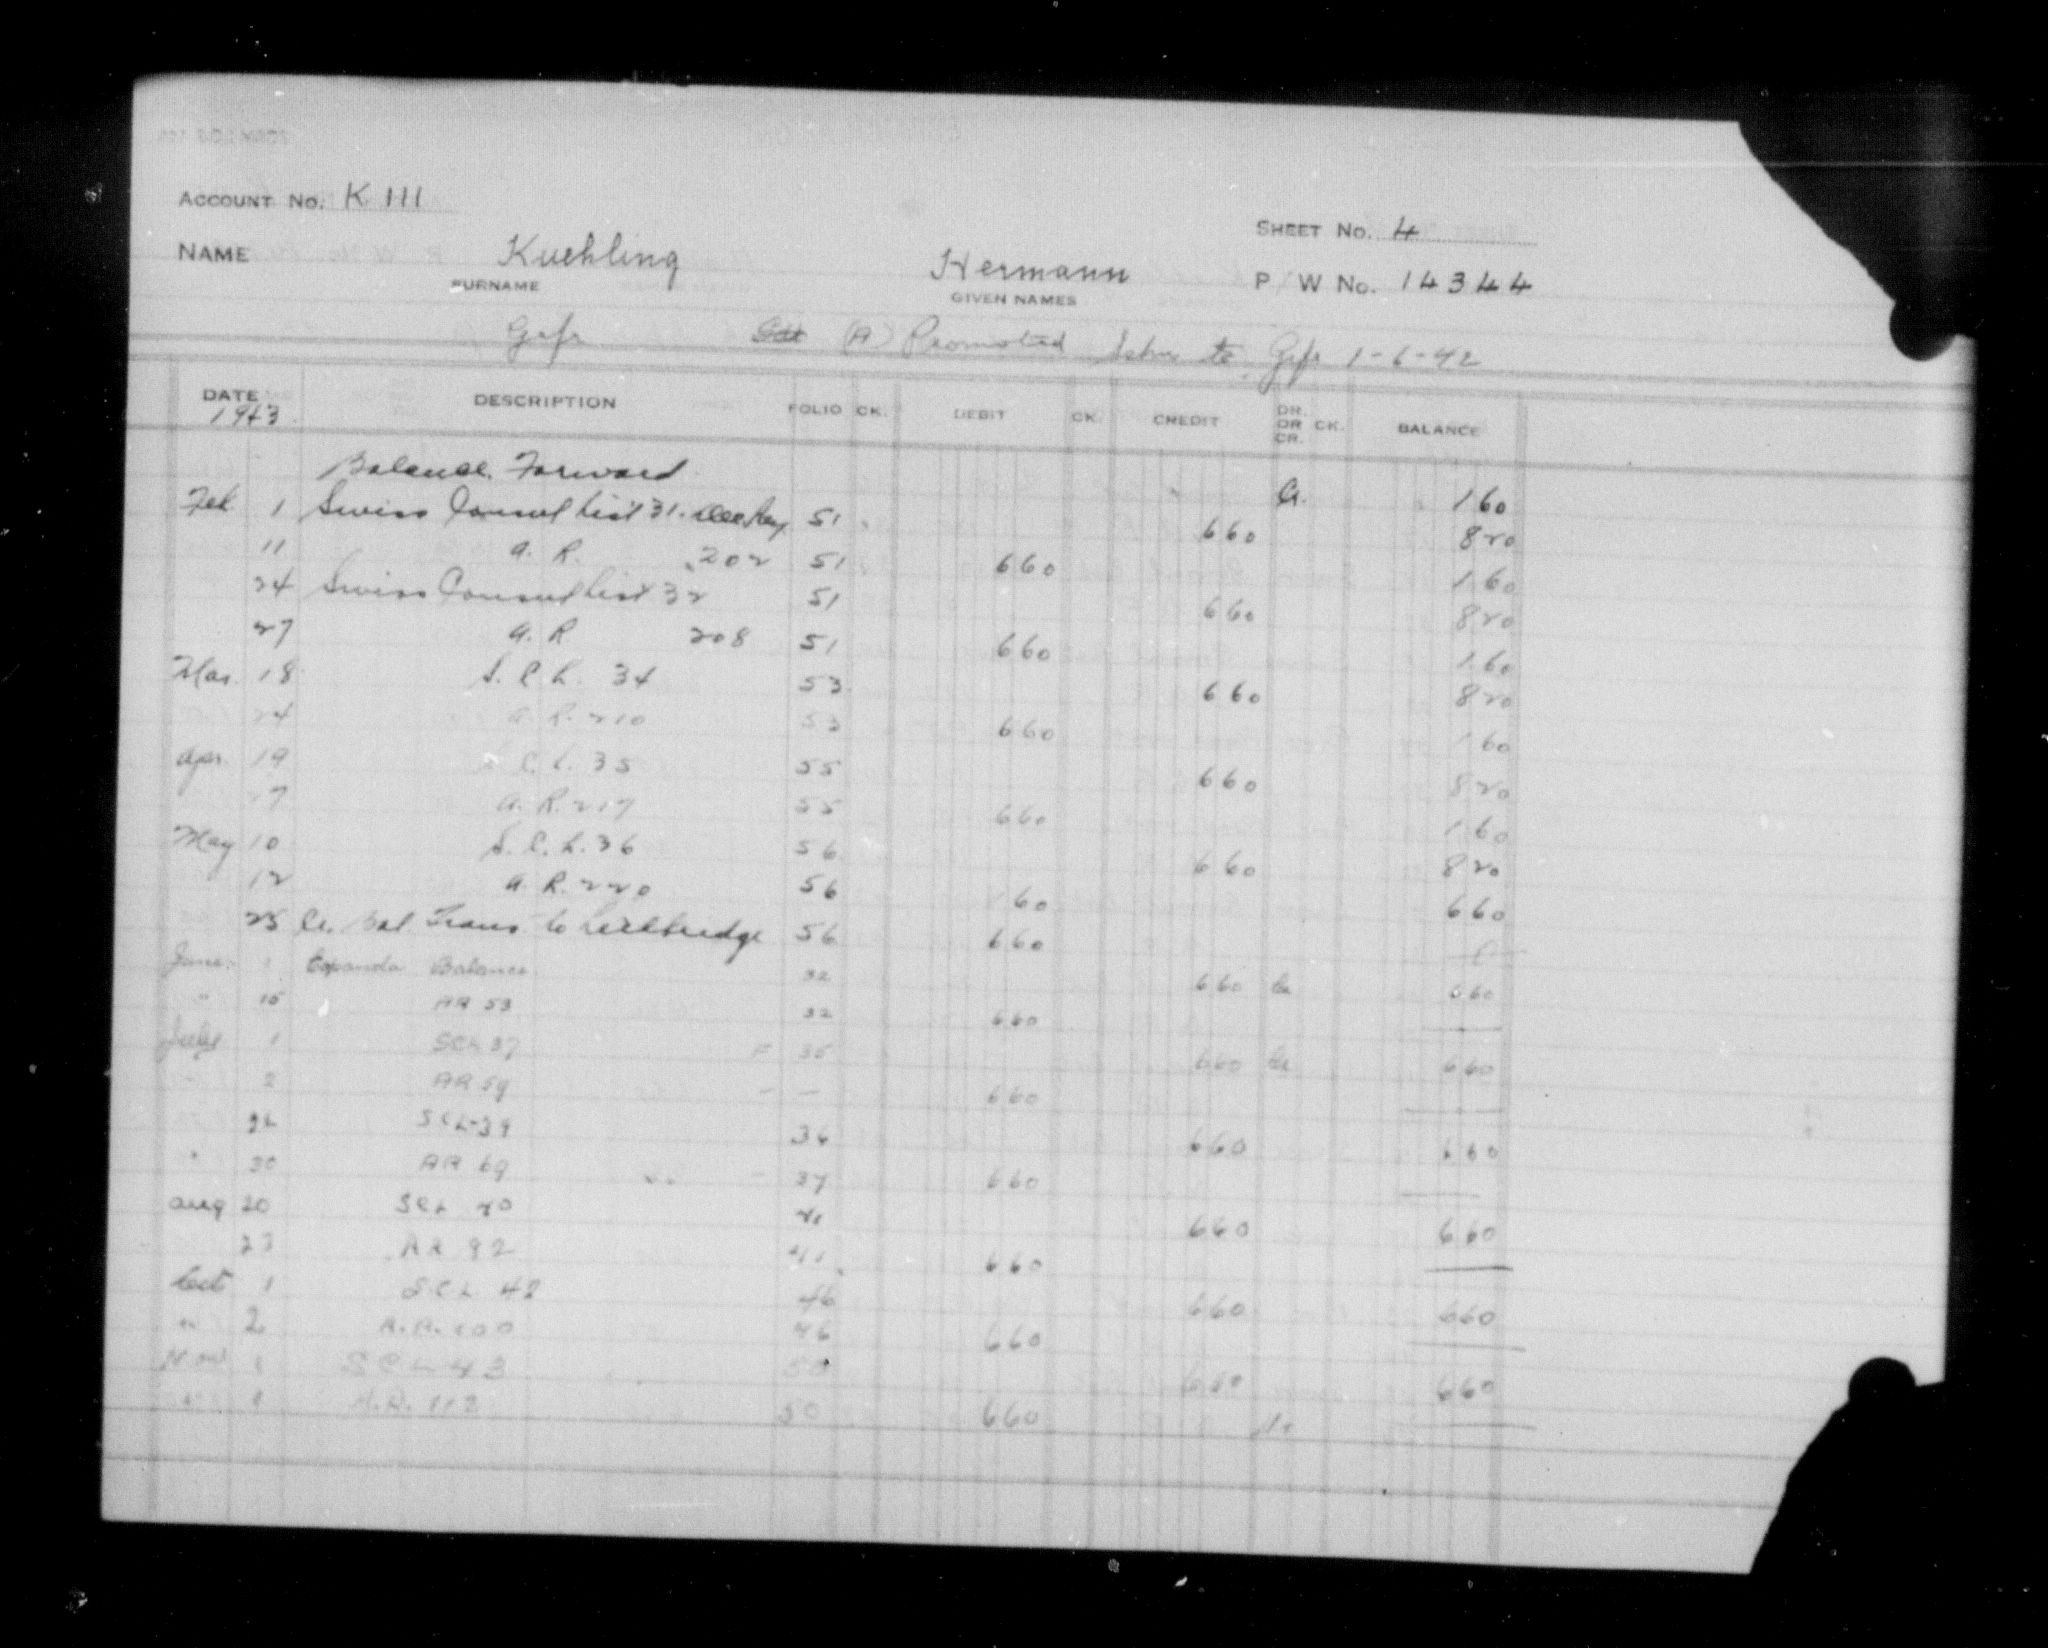 ACCOUNT No. K 111
SHEET No. 4
NAME Kuehling Hermann P/W No. 14344
SURNAME GIVEN NAMES
Gefr (A) Promoted to Gefr 1-6-42
DATE DESCRIPTION FOLIO CK. DEBIT CK. CREDIT DR. OR CR. CK. BALANCE
1943
Balance Forward Cr. 1 60
Feb 1 Swiss Consul List 31. 51 6 60 8 20
11 A. R. 202 51 6 60 1 60
24 Swiss Consul List 32 51 6 60 8 20
27 A. R 208 51 6 60 1 60
Mar. 18 S. C. L. 34 53 6 60 8 20
24 A. R. 210 53 6 60 1 60
Apr. 19 C. L. 35 55 6 60 8 20
27 A. R. 217 55 6 60 1 60
May 10 S. C. L. 36 56 6 60 8 20
12 A. R. 220 56 1 60 6 60
25 Cr. Bal Trans to Lethbridge 56 6 60
June 1 Balance 32 6 60 Cr 6 60
" 15 AR 53 32 6 60
July 1 SCL 37 35 6 60 Cr 6 60
2 AR 59 6 60
SCL-39 36 6 60 6 60
" 30 AR 69 37 6 60
Aug 20 SCL 40 41 6 60 6 60
23 AR 92 41 6 60
Oct 1 SCL 42 46 6 60 6 60
" 2 A.R. 100 46 6 60
Nov 1 SCL 43 50 6 60 6 60
" A.R. 112 50 6 60